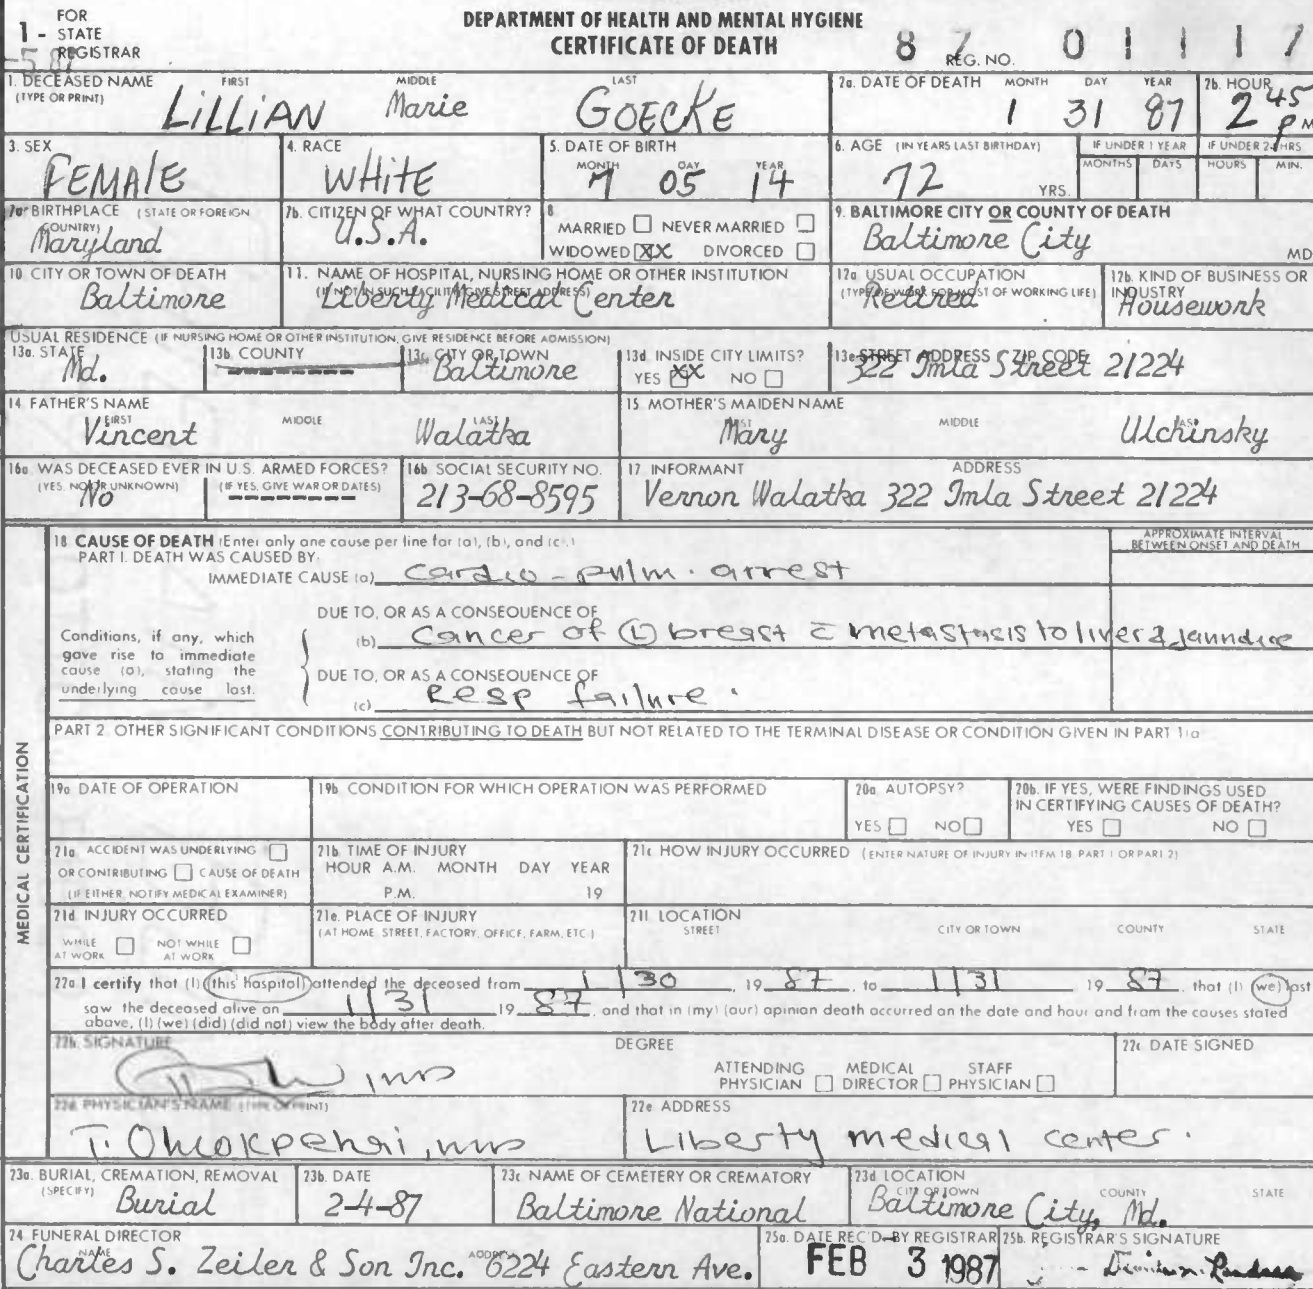 FOR
1 - STATE
REGISTRAR
DEPARTMENT OF HEALTH AND MENTAL HYGIENE
CERTIFICATE OF DEATH
87 01117
REG. NO.
1. DECEASED NAME FIRST MIDDLE LAST
(TYPE OR PRINT)
LiLLiAN Marie GOECKE
2a. DATE OF DEATH MONTH DAY YEAR
1 31 87
2b. HOUR
2 45 PM
3. SEX
FEMAlE
4. RACE
WHitE
5. DATE OF BIRTH
MONTH DAY YEAR
7 05 14
6. AGE (IN YEARS LAST BIRTHDAY)
72 YRS.
IF UNDER 1 YEAR
MONTHS DAYS
IF UNDER 24 HRS
HOURS MIN.
7a. BIRTHPLACE (STATE OR FOREIGN
COUNTRY)
Maryland
7b. CITIZEN OF WHAT COUNTRY?
U.S.A.
8
MARRIED NEVER MARRIED
WIDOWED XX DIVORCED
9. BALTIMORE CITY OR COUNTY OF DEATH
Baltimore City MD
10. CITY OR TOWN OF DEATH
Baltimore
11. NAME OF HOSPITAL, NURSING HOME OR OTHER INSTITUTION
(IF NOT IN SUCH FACILITY, GIVE STREET ADDRESS)
Liberty Medical Center
12a. USUAL OCCUPATION
(TYPE OF WORK FOR MOST OF WORKING LIFE)
Retired
12b. KIND OF BUSINESS OR
INDUSTRY
Housework
USUAL RESIDENCE (IF NURSING HOME OR OTHER INSTITUTION, GIVE RESIDENCE BEFORE ADMISSION)
13a. STATE
Md.
13b. COUNTY
13c. CITY OR TOWN
Baltimore
13d. INSIDE CITY LIMITS?
YES XX NO
13e. STREET ADDRESS ZIP CODE
322 Imla Street 21224
14. FATHER'S NAME
FIRST MIDDLE LAST
Vincent Walatka
15. MOTHER'S MAIDEN NAME
FIRST MIDDLE LAST
Mary Ulchinsky
16a. WAS DECEASED EVER IN U.S. ARMED FORCES?
(YES, NO OR UNKNOWN) (IF YES, GIVE WAR OR DATES)
No
16b. SOCIAL SECURITY NO.
213-68-8595
17. INFORMANT ADDRESS
Vernon Walatka 322 Imla Street 21224
MEDICAL CERTIFICATION
18 CAUSE OF DEATH (Enter only one cause per line for (a), (b), and (c).)
APPROXIMATE INTERVAL
BETWEEN ONSET AND DEATH
PART I. DEATH WAS CAUSED BY:
IMMEDIATE CAUSE (a) cardio - pulm. arrest
DUE TO, OR AS A CONSEQUENCE OF
(b) Cancer of (L) breast c̄ metastasis to liver & jaundice
Conditions, if any, which
gave rise to immediate
cause (a), stating the
underlying cause last.
DUE TO, OR AS A CONSEQUENCE OF
(c) Resp failure.
PART 2. OTHER SIGNIFICANT CONDITIONS CONTRIBUTING TO DEATH BUT NOT RELATED TO THE TERMINAL DISEASE OR CONDITION GIVEN IN PART 1(a)
19a. DATE OF OPERATION
19b. CONDITION FOR WHICH OPERATION WAS PERFORMED
20a. AUTOPSY?
YES NO
20b. IF YES, WERE FINDINGS USED
IN CERTIFYING CAUSES OF DEATH?
YES NO
21a. ACCIDENT WAS UNDERLYING
OR CONTRIBUTING CAUSE OF DEATH
(IF EITHER, NOTIFY MEDICAL EXAMINER)
21b. TIME OF INJURY
HOUR A.M. MONTH DAY YEAR
P.M. 19
21c. HOW INJURY OCCURRED (ENTER NATURE OF INJURY IN ITEM 18 PART 1 OR PART 2)
21d. INJURY OCCURRED
WHILE AT WORK NOT WHILE AT WORK
21e. PLACE OF INJURY
(AT HOME, STREET, FACTORY, OFFICE, FARM, ETC.)
21f. LOCATION
STREET CITY OR TOWN COUNTY STATE
22a I certify that (I) (this hospital) attended the deceased from 1/30, 1987, to 1/31 1987, that (I) (we) last
saw the deceased alive on 1/31 1987, and that in (my) (our) opinion death occurred on the date and hour and from the causes stated
above, (I) (we) (did) (did not) view the body after death.
22b. SIGNATURE DEGREE
MD
ATTENDING PHYSICIAN MEDICAL DIRECTOR STAFF PHYSICIAN
22c. DATE SIGNED
22d. PHYSICIAN'S NAME (TYPE OR PRINT)
22e. ADDRESS
Liberty medical center.
23a. BURIAL, CREMATION, REMOVAL
(SPECIFY)
Burial
23b. DATE
2-4-87
23c. NAME OF CEMETERY OR CREMATORY
Baltimore National
23d. LOCATION
CITY OR TOWN COUNTY STATE
Baltimore City, Md.
24. FUNERAL DIRECTOR
NAME ADDRESS
Charles S. Zeiler & Son Inc. 6224 Eastern Ave.
25a. DATE REC'D BY REGISTRAR
FEB 3 1987
25b. REGISTRAR'S SIGNATURE